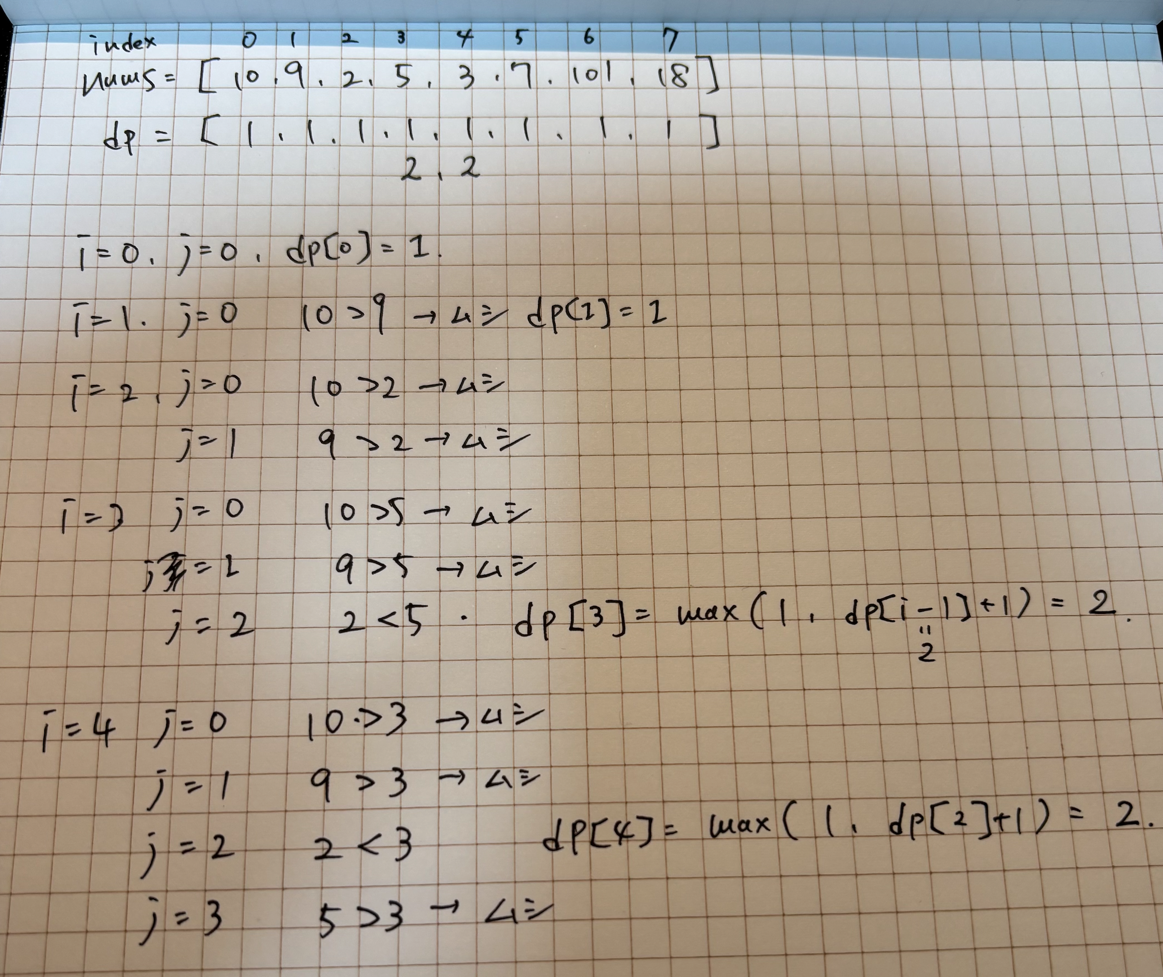 index 0 1 2 3 4 5 6 7
nums = [ 10 . 9 . 2 . 5 . 3 . 7 . 101 . 18 ]
dp = [ 1 . 1 . 1 . 1 . 1 . 1 . 1 . 1 ]
2 . 2
i=0. j=0. dp[0] = 1.
i=1. j=0 10 > 9 → dp[1] = 1
i=2, j=0 10 > 2 →
j=1 9 > 2 →
i=3 j=0 10 > 5 →
j=1 9 > 5 →
j=2 2 < 5 . dp[3] = max(1, dp[i-1]+1) = 2.
"
2
i=4 j=0 10 > 3 →
j=1 9 > 3 →
j=2 2 < 3 dp[4] = max(1, dp[2]+1) = 2.
j=3 5 > 3 →